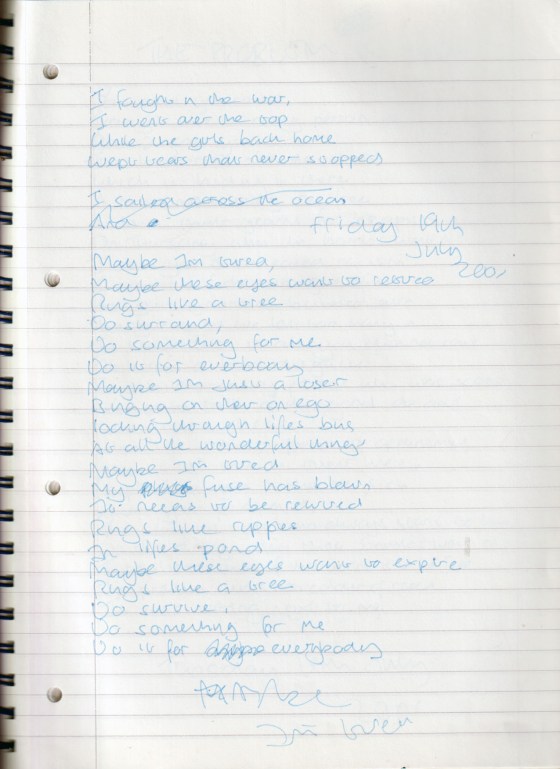 I fought in the war,
I went over the top
While the girls back home
Wept tears that never stopped
I sailed across the ocean
And
Friday 19th
July
Maybe Im tired,
Maybe these eyes want to retire
Rings like a tree
Do
Do something for me
Do it for everbody
Maybe Im just a loser
on an ego
looking through lifes
At all the wonderful things
Maybe Im tired
My fuse has blown
It needs to be rewired
Rings like ripples
In lifes pond
Maybe these eyes want to expire
Rings like a tree
Do survive,
Do something for me
Do it for everybody
Im tired